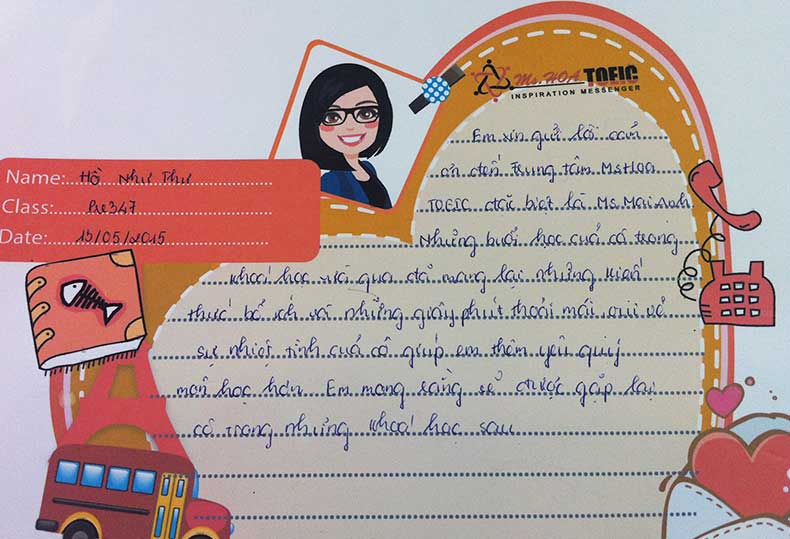 Ms. HOA TOEIC
INSPIRATION MESSENGER
Name: Hồ Như Thư
Class: Pre347
Date: 15/05/2015
Em xin gửi lời cảm
ơn đến Trung tâm Ms Hoa
TOEIC đặc biệt là Ms. Mai Anh
Những buổi học cuả cô trong
khoá học vừa qua đã mang lại những kiến
thức bổ ích và những giây phút thoải mái, vui vẻ
sự nhiệt tình cuả cô giúp em thêm yêu quý
môn học hơn. Em mong rằng sẽ được gặp lại
cô trong những khoá học sau